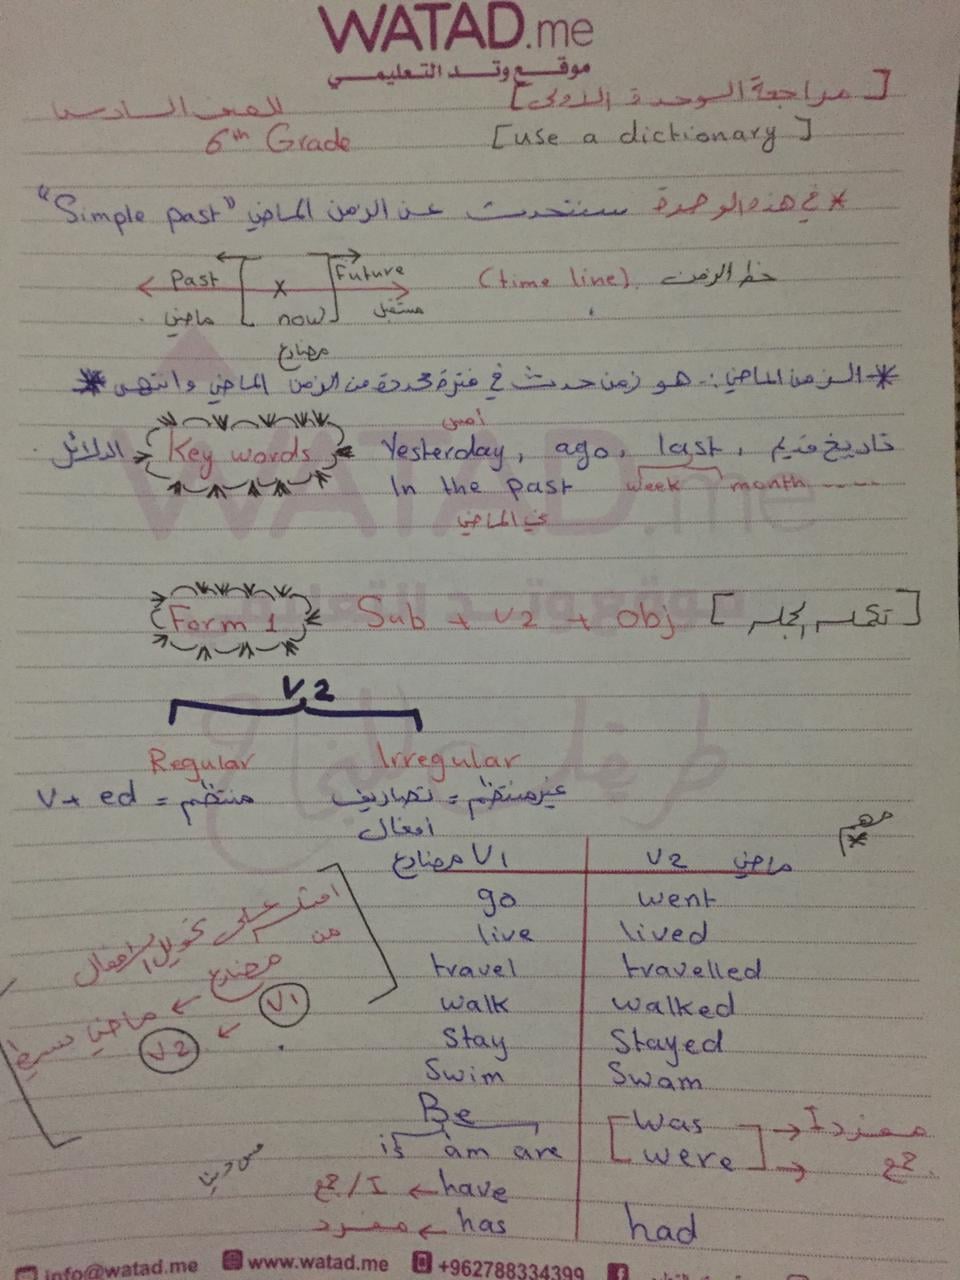 WATAD.me
موقع وتد التعليمي
[مراجعة الوحدة الأولى]
للصف السادس
[use a dictionary]
6th Grade
* في هذه الوحدة سنتحدث عن الزمن الماضي "Simple past"
خط الزمن (time line)
Past × Future
ماضي now مستقبل
مضارع
* الزمن الماضي:- هو زمن حدث في فترة محددة من الزمن الماضي وانتهى *
أمس
الدلائل Key words Yesterday, ago, last, تاريخ قديم
In the past week month ----
في الماضي
Form 1 Sub + V2 + Obj
V2
Regular Irregular
V+ ed = منتظم غير منتظم = تصاريف
أفعال
مضارع V1 V2 ماضي
go went
live lived
travel travelled
walk walked
Stay Stayed
Swim Swam
Be
is am are
Was → I مفرد
were → جمع
جمع / I ← have
مفرد ← has
had
على تحويل الأفعال
من
مضارع V1 ← ماضي بسيط V2
info@watad.me www.watad.me +962788334399